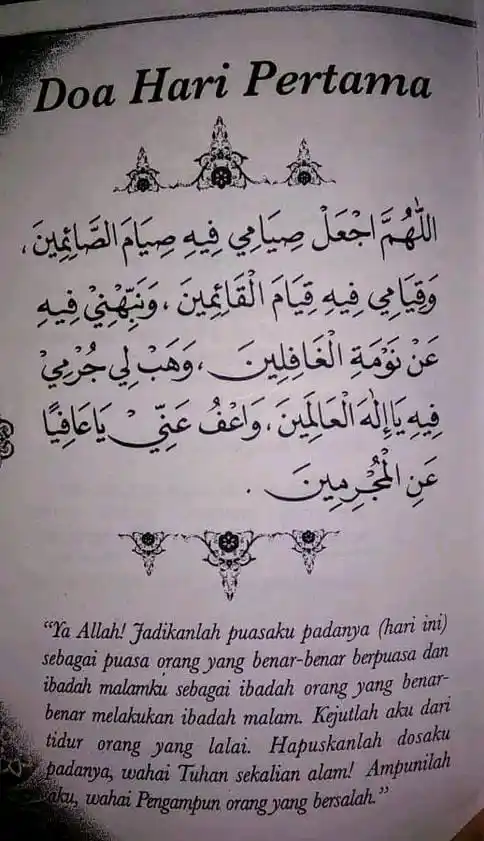 Doa Hari Pertama
اللَّهُمَّ اجْعَلْ صِيَامِي فِيهِ صِيَامَ الصَّائِمِينَ،
وَقِيَامِي فِيهِ قِيَامَ الْقَائِمِينَ، وَنَبِّهْنِيْ فِيهِ
عَنْ نَوْمَةِ الْغَافِلِينَ، وَهَبْ لِي جُرْمِيْ
فِيهِ يَا إِلٰهَ الْعَالَمِينَ، وَاعْفُ عَنِّيْ يَا عَافِيًا
عَنِ الْمُجْرِمِينَ.
“Ya Allah! Jadikanlah puasaku padanya (hari ini)
sebagai puasa orang yang benar-benar berpuasa dan
ibadah malamku sebagai ibadah orang yang benar-
benar melakukan ibadah malam. Kejutlah aku dari
tidur orang yang lalai. Hapuskanlah dosaku
padanya, wahai Tuhan sekalian alam! Ampunilah
aku, wahai Pengampun orang yang bersalah.”